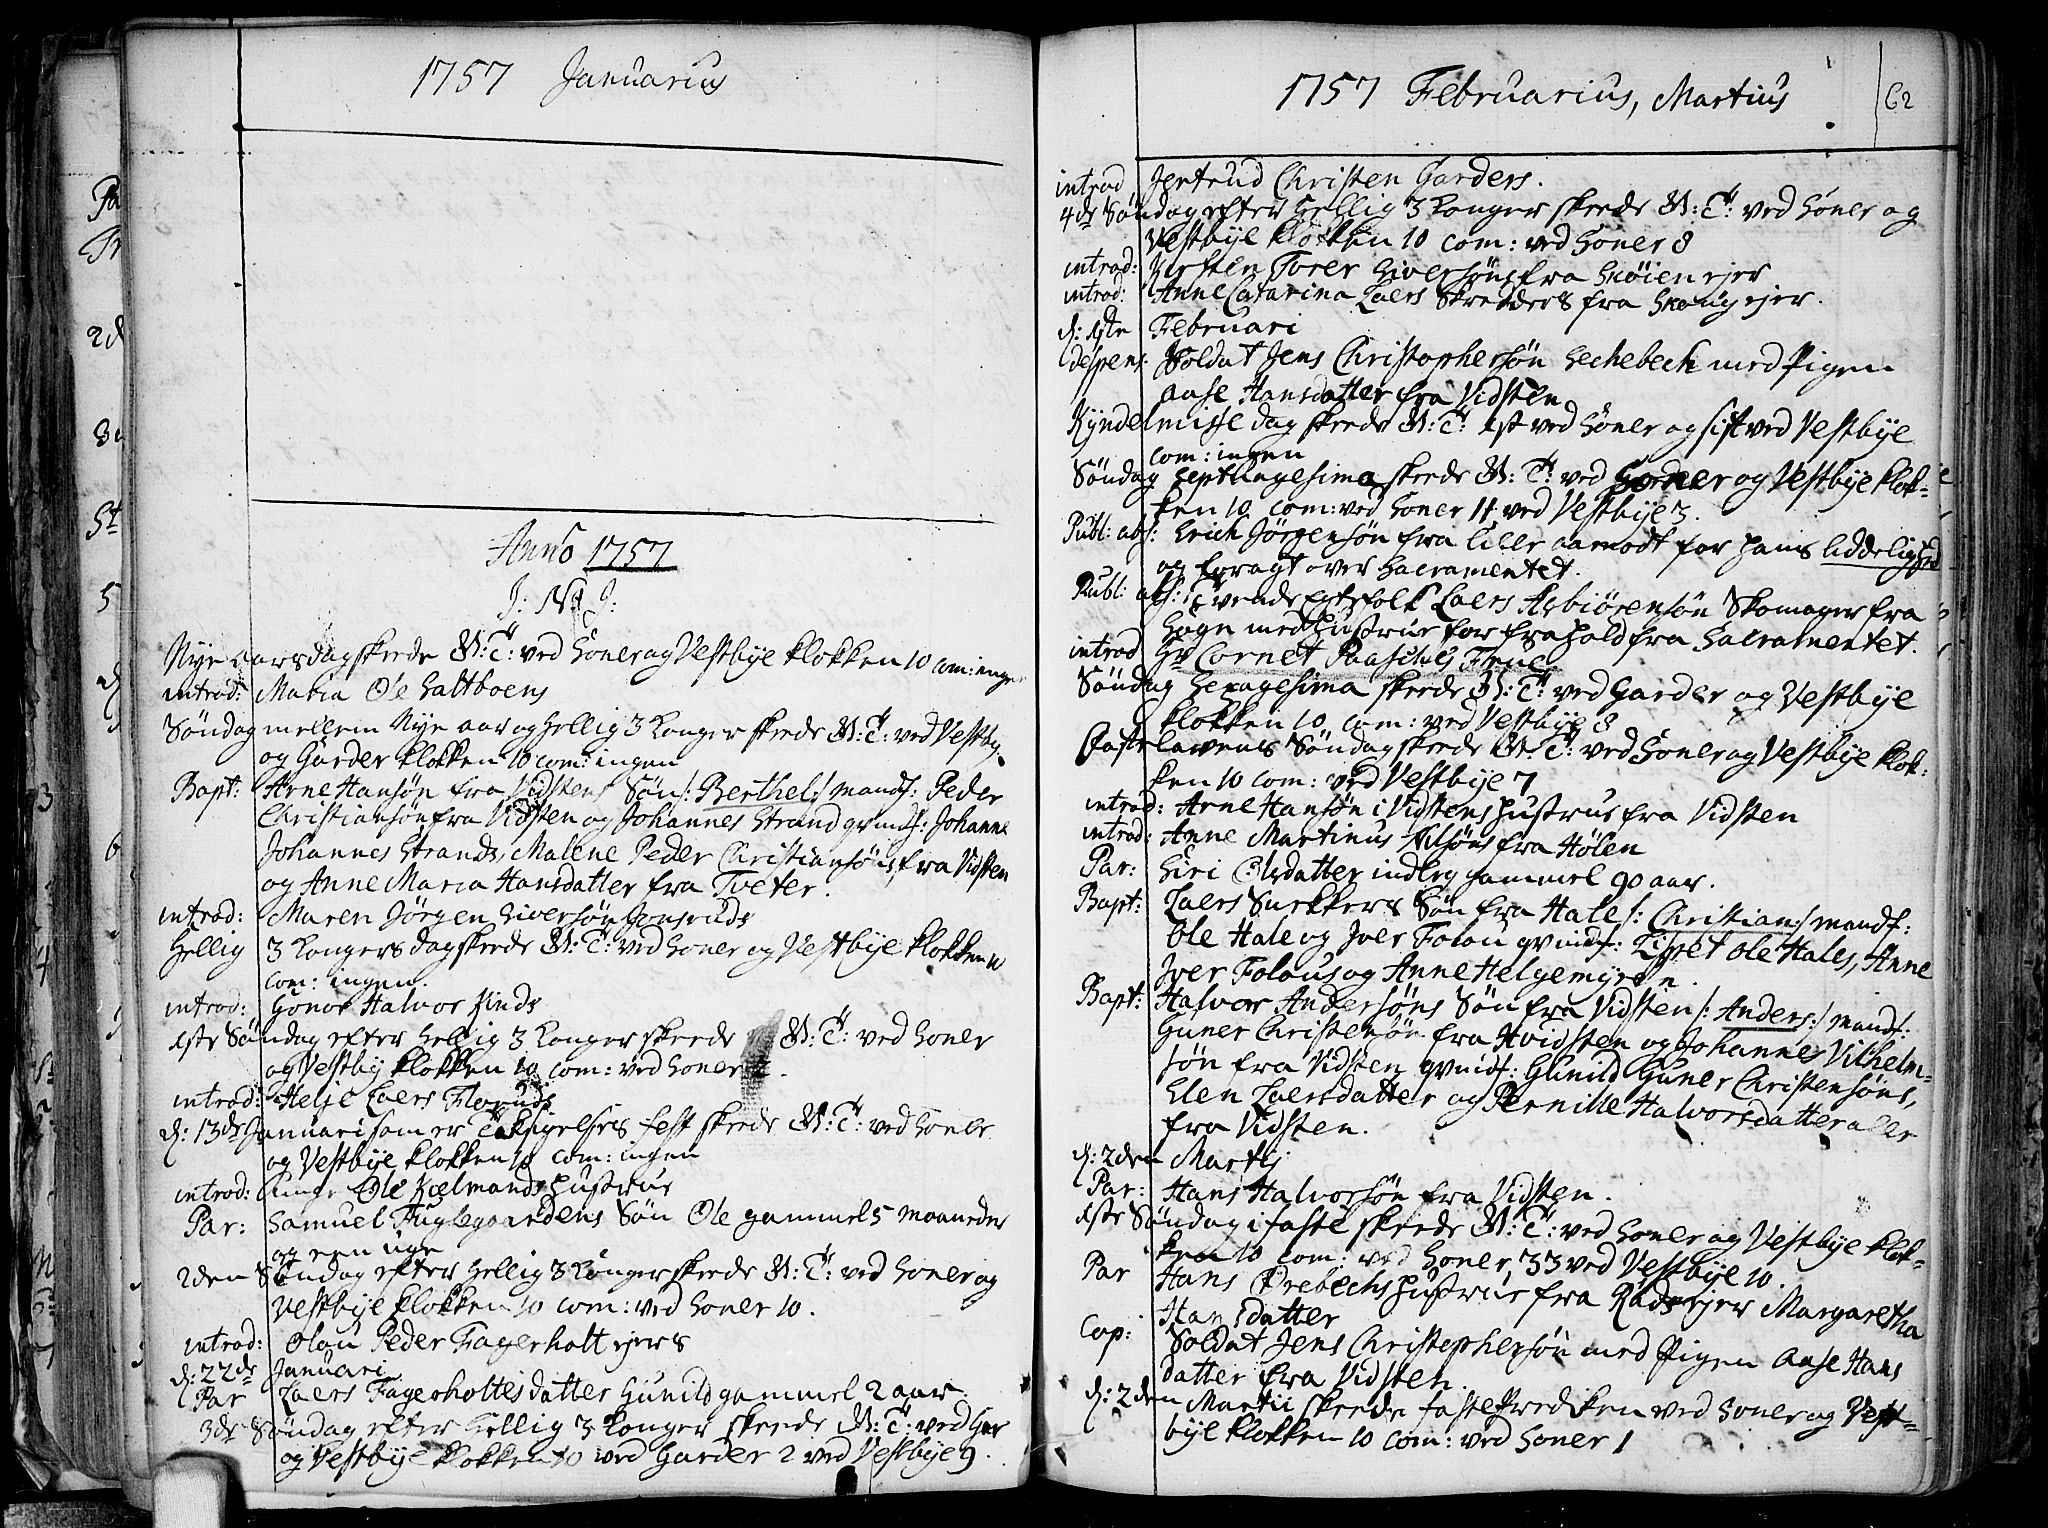 1757 Januarius
Anno 1757
J: N: J:
Nye aarsdag skeede G: T: ved Soner og Vestbye klokken 10 com: ingen
introd: Maria Ole Saltboens
Søndag mellem Nye aar og Hellig 3 Konger skeede G: T: ved Vestby
og Garder klokken 10 com: ingen
Bapt: Arne Hansøn fra Vidstens Søn /: Berthel :/ mandf: Peder
Christiansøn fra Vidsten og Johannes Strand qvindf: Johanne
Johannes Strands, Malene Peder Christiansøns fra Vidsten
og Anne Maria Hansdatter fra Tveter.
introd: Maren Jørgen Siversøn
Hellig 3 Kongers dag skeede G: T: ved Soner og Vestbye klokken 10
com: ingen.
introd: Gonor Halvor Kinds
1ste Søndag efter Hellig 3 Konger skeede G: T: ved Soner
og Vestby klokken 10 com: ved Soner
introd: Helje Laers
d: 13de Januari som er Taksigelses fest skeede G: T: ved Soner
og Vestbye klokken 10 com: ingen
introd: Ole Kælmands hustrue
Par: Samuel Fuglegaardens Søn Ole gammel 5 maaneder
og een uge
2den Søndag efter Hellig 3 Konger skeede G: T: ved Soner og
Vestbye klokken 10 com: ved Soner 10.
introd: Olau Peder Fagerholt ejers
d: 22de Januari.
Par Laers Fagerholtes datter Gunild gammel 2 aar.
3de Søndag efter Hellig 3 Konger skeede G: T: ved Gar
og Vestbye klokken 10 ved Garder 2 ved Vestbye 9.
1757 Februarius, Martius 62
introd Jertrud Christen Garders.
4de Søndag efter Hellig 3 Konger skeede G: T: ved Soner og
Vestbye klokken 10 com: ved Soner 8
introd: Kirsten Torer Siversøns fra Skøien ejer
introd: Anne Catarina Laers Skredders fra Skoug ejer.
d: 1ste Februari
despens: Soldat Jens Christophersøn Sechebech med Pigen
Aase Hansdatter fra Vidsten
Kyndelmisse dag skeede G: T: 1st ved Soner og sist ved Vestbye
com: ingen
Søndag Septuagesima skeede G: T: ved Soner og Vestbye klok-
ken 10 com: ved Soner 11 ved Vestbye 3.
Publ: abs: Erich Jørgensøn fra lille aamodt for hans liddelighed
og foragt over Sacramentet.
Publ: abs: Tvende Egtefolk Laers Asbiørensøn Skomager fra
Hogn med hustrue for frahold fra Sacramentet.
introd Hr Cornet Paasches Frue
Søndag Sexagesima skeede G: T: ved Garder og Vestbye
klokken 10 com: ved Vestbye 8
Fastelavens Søndag skeede G: T: ved Soner og Vestbye klok:
ken 10 com: ved Vestbye 7
introd: Arne Hansøn i Vidstens hustrue fra Vidsten
introd: Anne Martinus Nilsøns fra Hølen
Par: Siri Olsdatter indleg gammel 90 aar.
Bapt: Laers Snekkers Søn fra Hale /: Christian :/ mandf:
Ole Hale og Iver Folou qvindf: Lisbet Ole Hales, Anne
Iver Folous og Anne Helgemyren.
Bapt: Halvor Andersøns Søn fra Vidsten /: Anders :/ mandf:
Guner Christensøn fra Hvidsten og Johannes Vilhelm-
søn fra Vidsten qvindf: Gunild Guner Christensøns,
Elen Laersdatter og Pernille Halvorsdatter alle
fra Vidsten.
d: 2den Martij
Par: Hans Halvorsøn fra Vidsten.
1ste Søndag i faste skeede G: T: ved Soner og Vestbye klok-
ken 10 com: ved Soner 33 ved Vestbye 10.
Par Hans Krebechs hustrue fra Radsejer Margaretha
Hansdatter
Cop: Soldat Jens Christophersøn med Pigen Aase Hans
datter fra Vidsten.
d: 2den Martii skeede fastePrediken ved Soner og Vest-
bye klokken 10 com: ved Soner 1